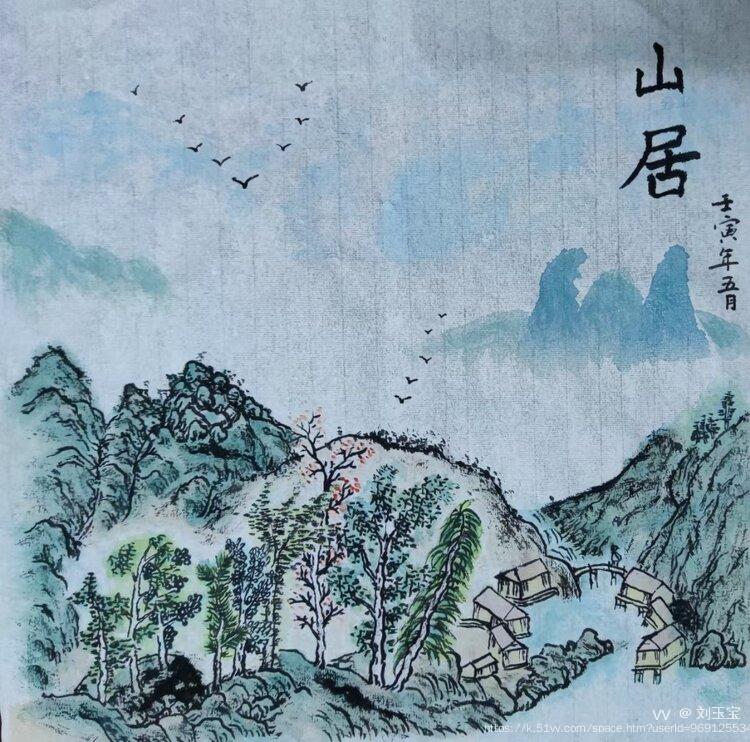 山居
壬寅年五月
W @ 刘玉宝
https://k.51vv.com/space.htm?userId=969125534